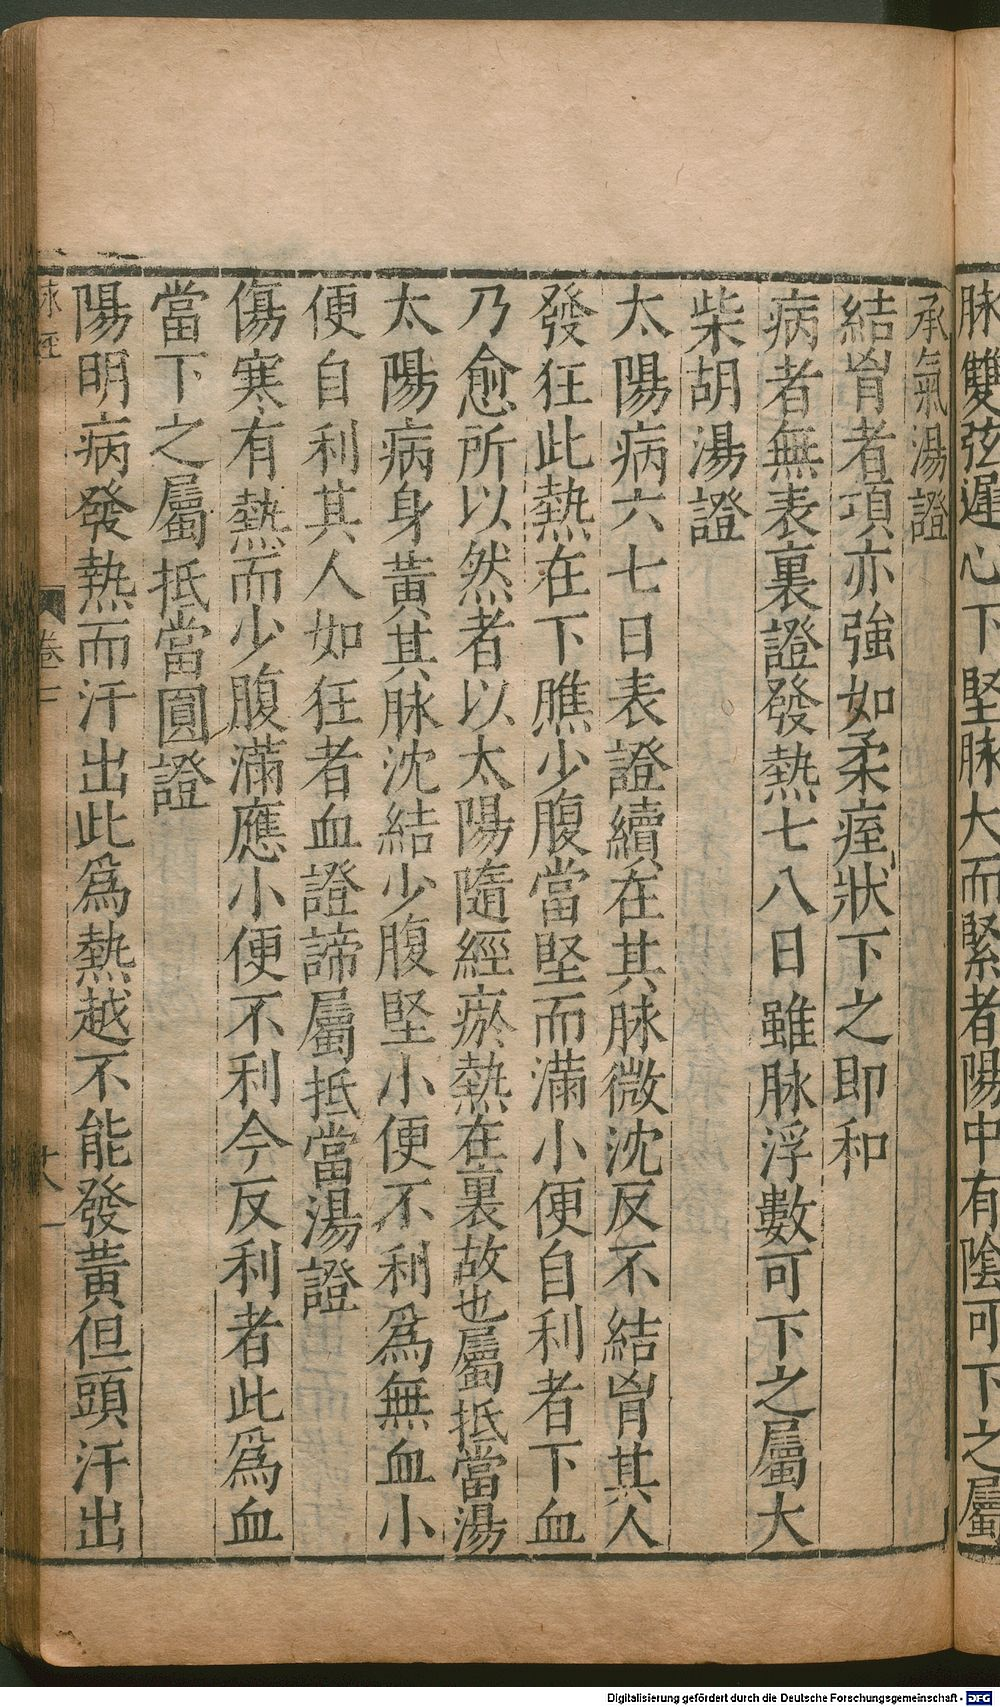 脉雙弦遲心下堅脉大而緊者陽中有陰可下之屬
承氣湯證
結胷者項亦強如柔痓狀下之即和
病者無表裏證發熱七八日雖脉浮數可下之屬大
柴胡湯證
太陽病六七日表證續在其脉微沈反不結胷其人
發狂此熱在下膲少腹當堅而滿小便自利者下血
乃愈所以然者以太陽隨經瘀熱在裏故也屬抵當湯
太陽病身黃其脉沈結少腹堅小便不利爲無血小
便自利其人如狂者血證諦屬抵當湯證
傷寒有熱而少腹滿應小便不利今反利者此爲血
當下之屬抵當圓證
陽明病發熱而汗出此爲熱越不能發黃但頭汗出
脉經
卷七
十八
Digitalisierung gefördert durch die Deutsche Forschungsgemeinschaft - DFG